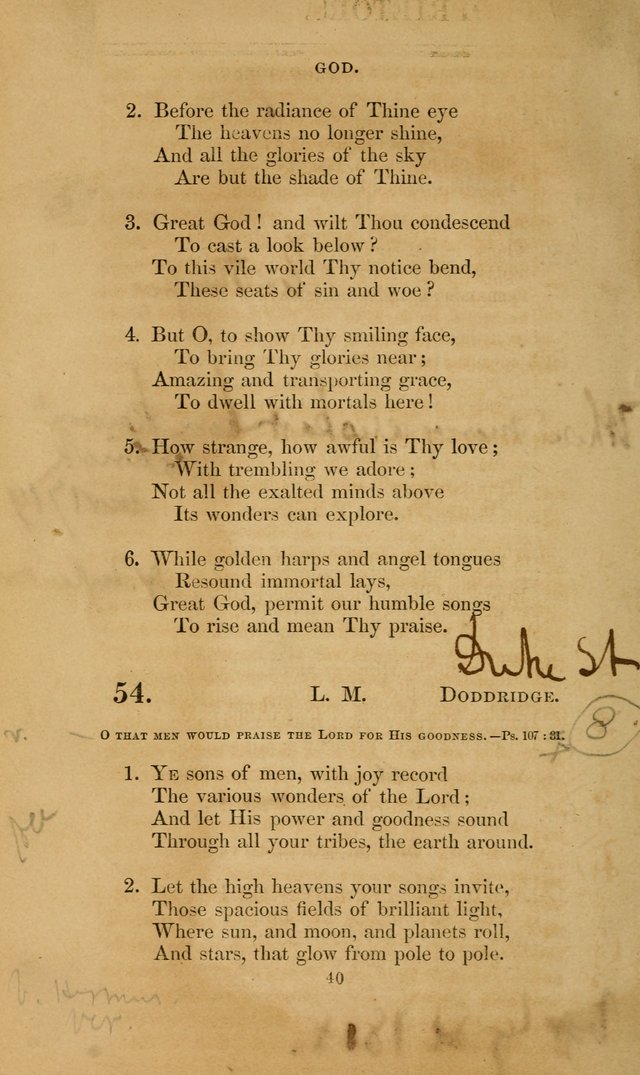 GOD.
2. Before the radiance of Thine eye
The heavens no longer shine,
And all the glories of the sky
Are but the shade of Thine.
3. Great God! and wilt Thou condescend
To cast a look below?
To this vile world Thy notice bend,
These seats of sin and woe?
4. But O, to show Thy smiling face,
To bring Thy glories near;
Amazing and transporting grace,
To dwell with mortals here!
5. How strange, how awful is Thy love;
With trembling we adore;
Not all the exalted minds above
Its wonders can explore.
6. While golden harps and angel tongues
Resound immortal lays,
Great God, permit our humble songs
To rise and mean Thy praise.
Duke St
54. L. M. Doddridge.
8
O that men would praise the Lord for His goodness.—Ps. 107 : 31.
v.
1. Ye sons of men, with joy record
The various wonders of the Lord;
And let His power and goodness sound
Through all your tribes, the earth around.
2. Let the high heavens your songs invite,
Those spacious fields of brilliant light,
Where sun, and moon, and planets roll,
And stars, that glow from pole to pole.
40